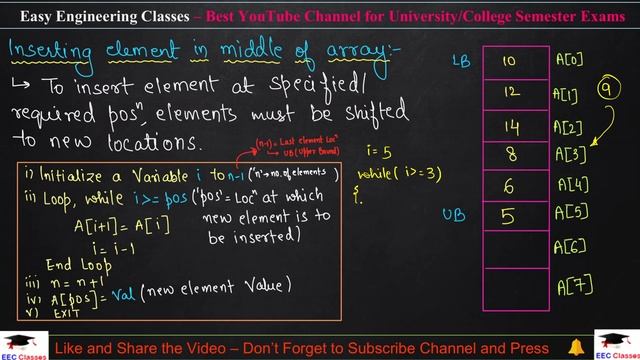 Easy Engineering Classes – Best YouTube Channel for University/College Semester Exams
Inserting element in middle of array:-
↳ To insert element at specified/
required posⁿ, elements must be shifted
to new locations.
(n-1) = Last element Locⁿ
↳ UB (Upper Bound)
i) Initialize a Variable i to n-1 ('n' → no. of elements)
ii) Loop, while i >= pos ('pos' = Locⁿ at which
new element is to
be inserted)
A[i+1] = A[i]
i = i-1
End Loop
iii) n = n+1
iv) A[pos] = Val (new element Value)
v) EXIT
i = 5
while( i >= 3)
{
i.
LB 10 A[0]
12 A[1]
9
14 A[2]
8 A[3]
6 A[4]
UB 5 A[5]
A[6]
A[7]
EEC Classes
Like and Share the Video – Don't Forget to Subscribe Channel and Press
EEC Classes